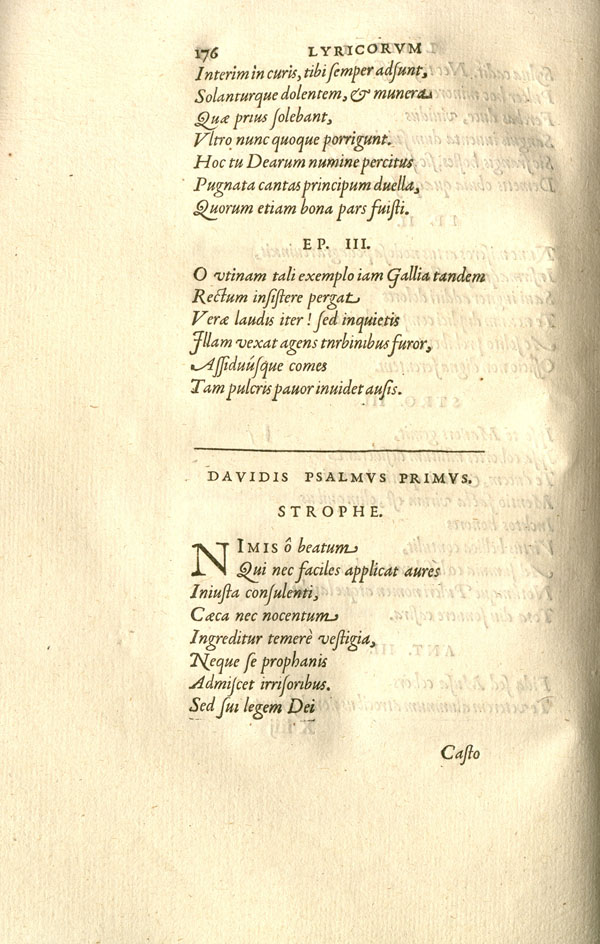 176 LYRICORVM
Interim in curis, tibi semper adsunt,
Solanturque dolentem, & munera
Quæ prius solebant,
Vltro nunc quoque porrigunt.
Hoc tu Dearum numine percitus
Pugnata cantas principum duella,
Quorum etiam bona pars fuisti.
EP. III.
O vtinam tali exemplo iam Gallia tandem
Rectum insistere pergat
Veræ laudis iter! sed inquietis
Illam vexat agens tnrbinibus furor,
Assiduúsque comes
Tam pulcris pauor inuidet ausis.
DAVIDIS PSALMVS PRIMVS.
STROPHE.
NIMIS ô beatum
Qui nec faciles applicat aures
Iniusta consulenti,
Cæca nec nocentum
Ingreditur temerè vestigia,
Neque se prophanis
Admiscet irrisoribus.
Sed sui legem Dei
Casto